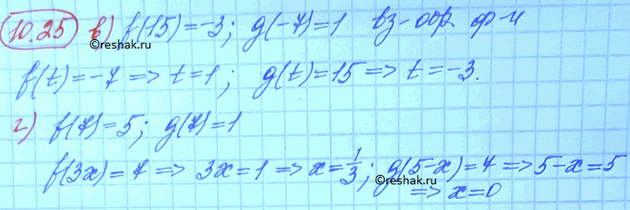 10.25 в) f(15)=-3; g(-7)=1 вз-обр ф-и
©reshak.ru
f(t)=-7 => t=1; g(t)=15 => t=-3.
г) f(7)=5; g(7)=1
f(3x)=7 => 3x=1 => x=1/3; g(5-x)=7 => 5-x=5
©reshak.ru
=> x=0